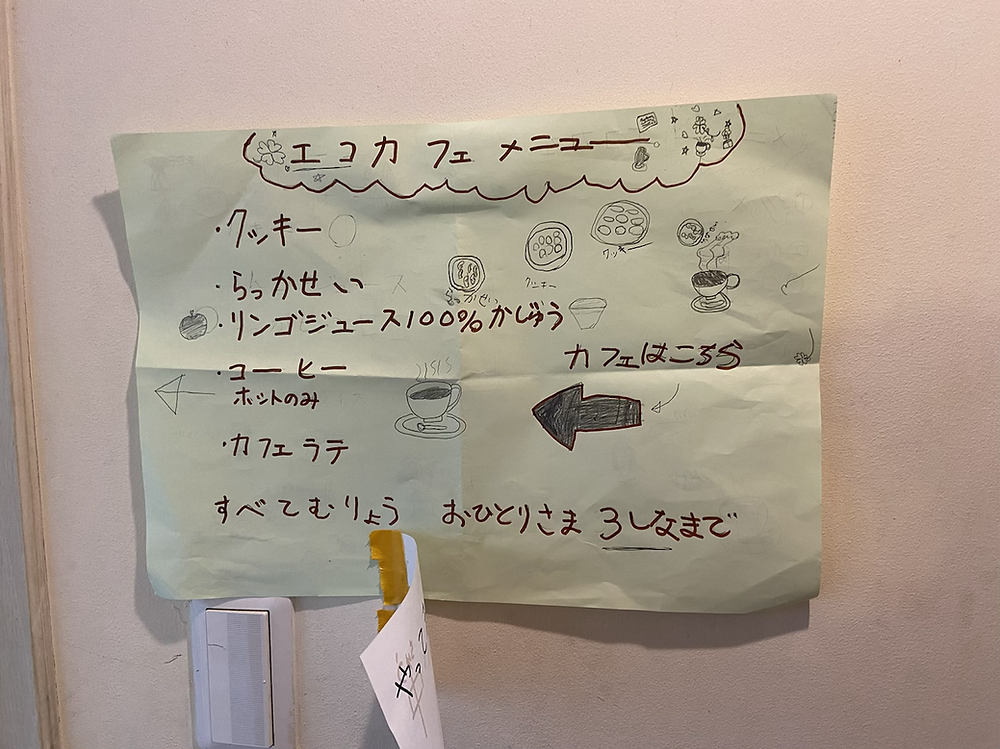 エコカフェメニュー
・クッキー
・らっかせい
・リンゴジュース100%かじゅう
・コーヒー
ホットのみ
・カフェラテ
カフェはこちら
すべてむりょう おひとりさま 3しなまで
らっかせい
クッキー